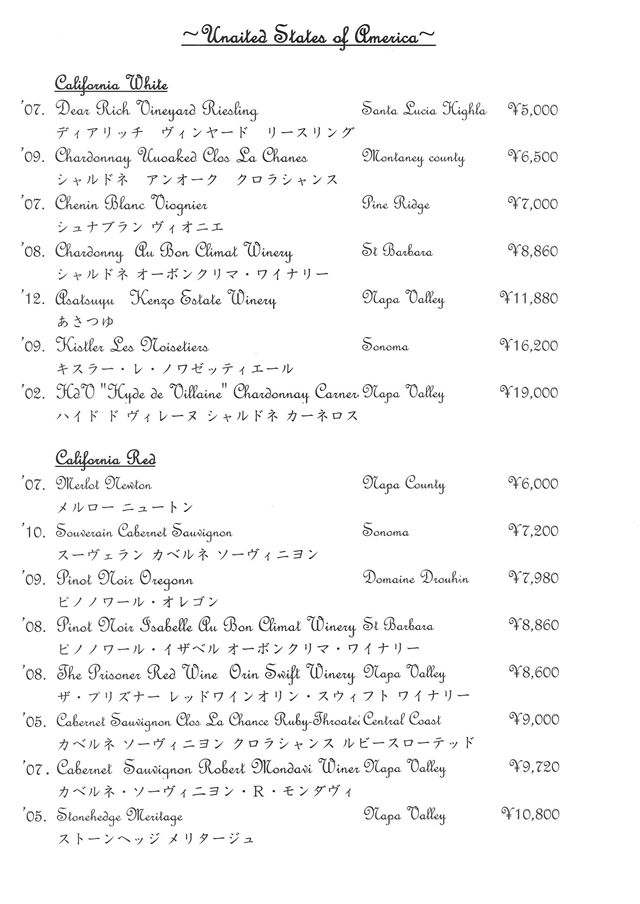 ~Unaited States of America~
California White
'07. Dear Rich Vineyard Riesling Santa Lucia Highla ¥5,000
ディアリッチ ヴィンヤード リースリング
'09. Chardonnay Uuoaked Clos La Chanes Montaney county ¥6,500
シャルドネ アンオーク クロラシャンス
'07. Chenin Blanc Viognier Pine Ridge ¥7,000
シュナブラン ヴィオニエ
'08. Chardonny Au Bon Climat Winery St Barbara ¥8,860
シャルドネ オーボンクリマ・ワイナリー
'12. Asatsuyu Kenzo Estate Winery Napa Valley ¥11,880
あさつゆ
'09. Kistler Les Noisetiers Sonoma ¥16,200
キスラー・レ・ノワゼッティエール
'02. HdV "Hyde de Villaine" Chardonnay Carner Napa Valley ¥19,000
ハイド ド ヴィレーヌ シャルドネ カーネロス
California Red
'07. Merlot Newton Napa County ¥6,000
メルロー ニュートン
'10. Souverain Cabernet Sauvignon Sonoma ¥7,200
スーヴェラン カベルネ ソーヴィニヨン
'09. Pinot Noir Oregonn Domaine Drouhin ¥7,980
ピノノワール・オレゴン
'08. Pinot Noir Isabelle Au Bon Climat Winery St Barbara ¥8,860
ピノノワール・イザベル オーボンクリマ・ワイナリー
'08. The Prisoner Red Wine Orin Swift Winery Napa Valley ¥8,600
ザ・プリズナー レッドワインオリン・スウィフト ワイナリー
'05. Cabernet Sauvignon Clos La Chance Ruby-Throatei Central Coast ¥9,000
カベルネ ソーヴィニヨン クロラシャンス ルビースローテッド
'07. Cabernet Sauvignon Robert Mondavi Winer Napa Valley ¥9,720
カベルネ・ソーヴィニヨン・R・モンダヴィ
'05. Stonehedge Meritage Napa Valley ¥10,800
ストーンヘッジ メリタージュ